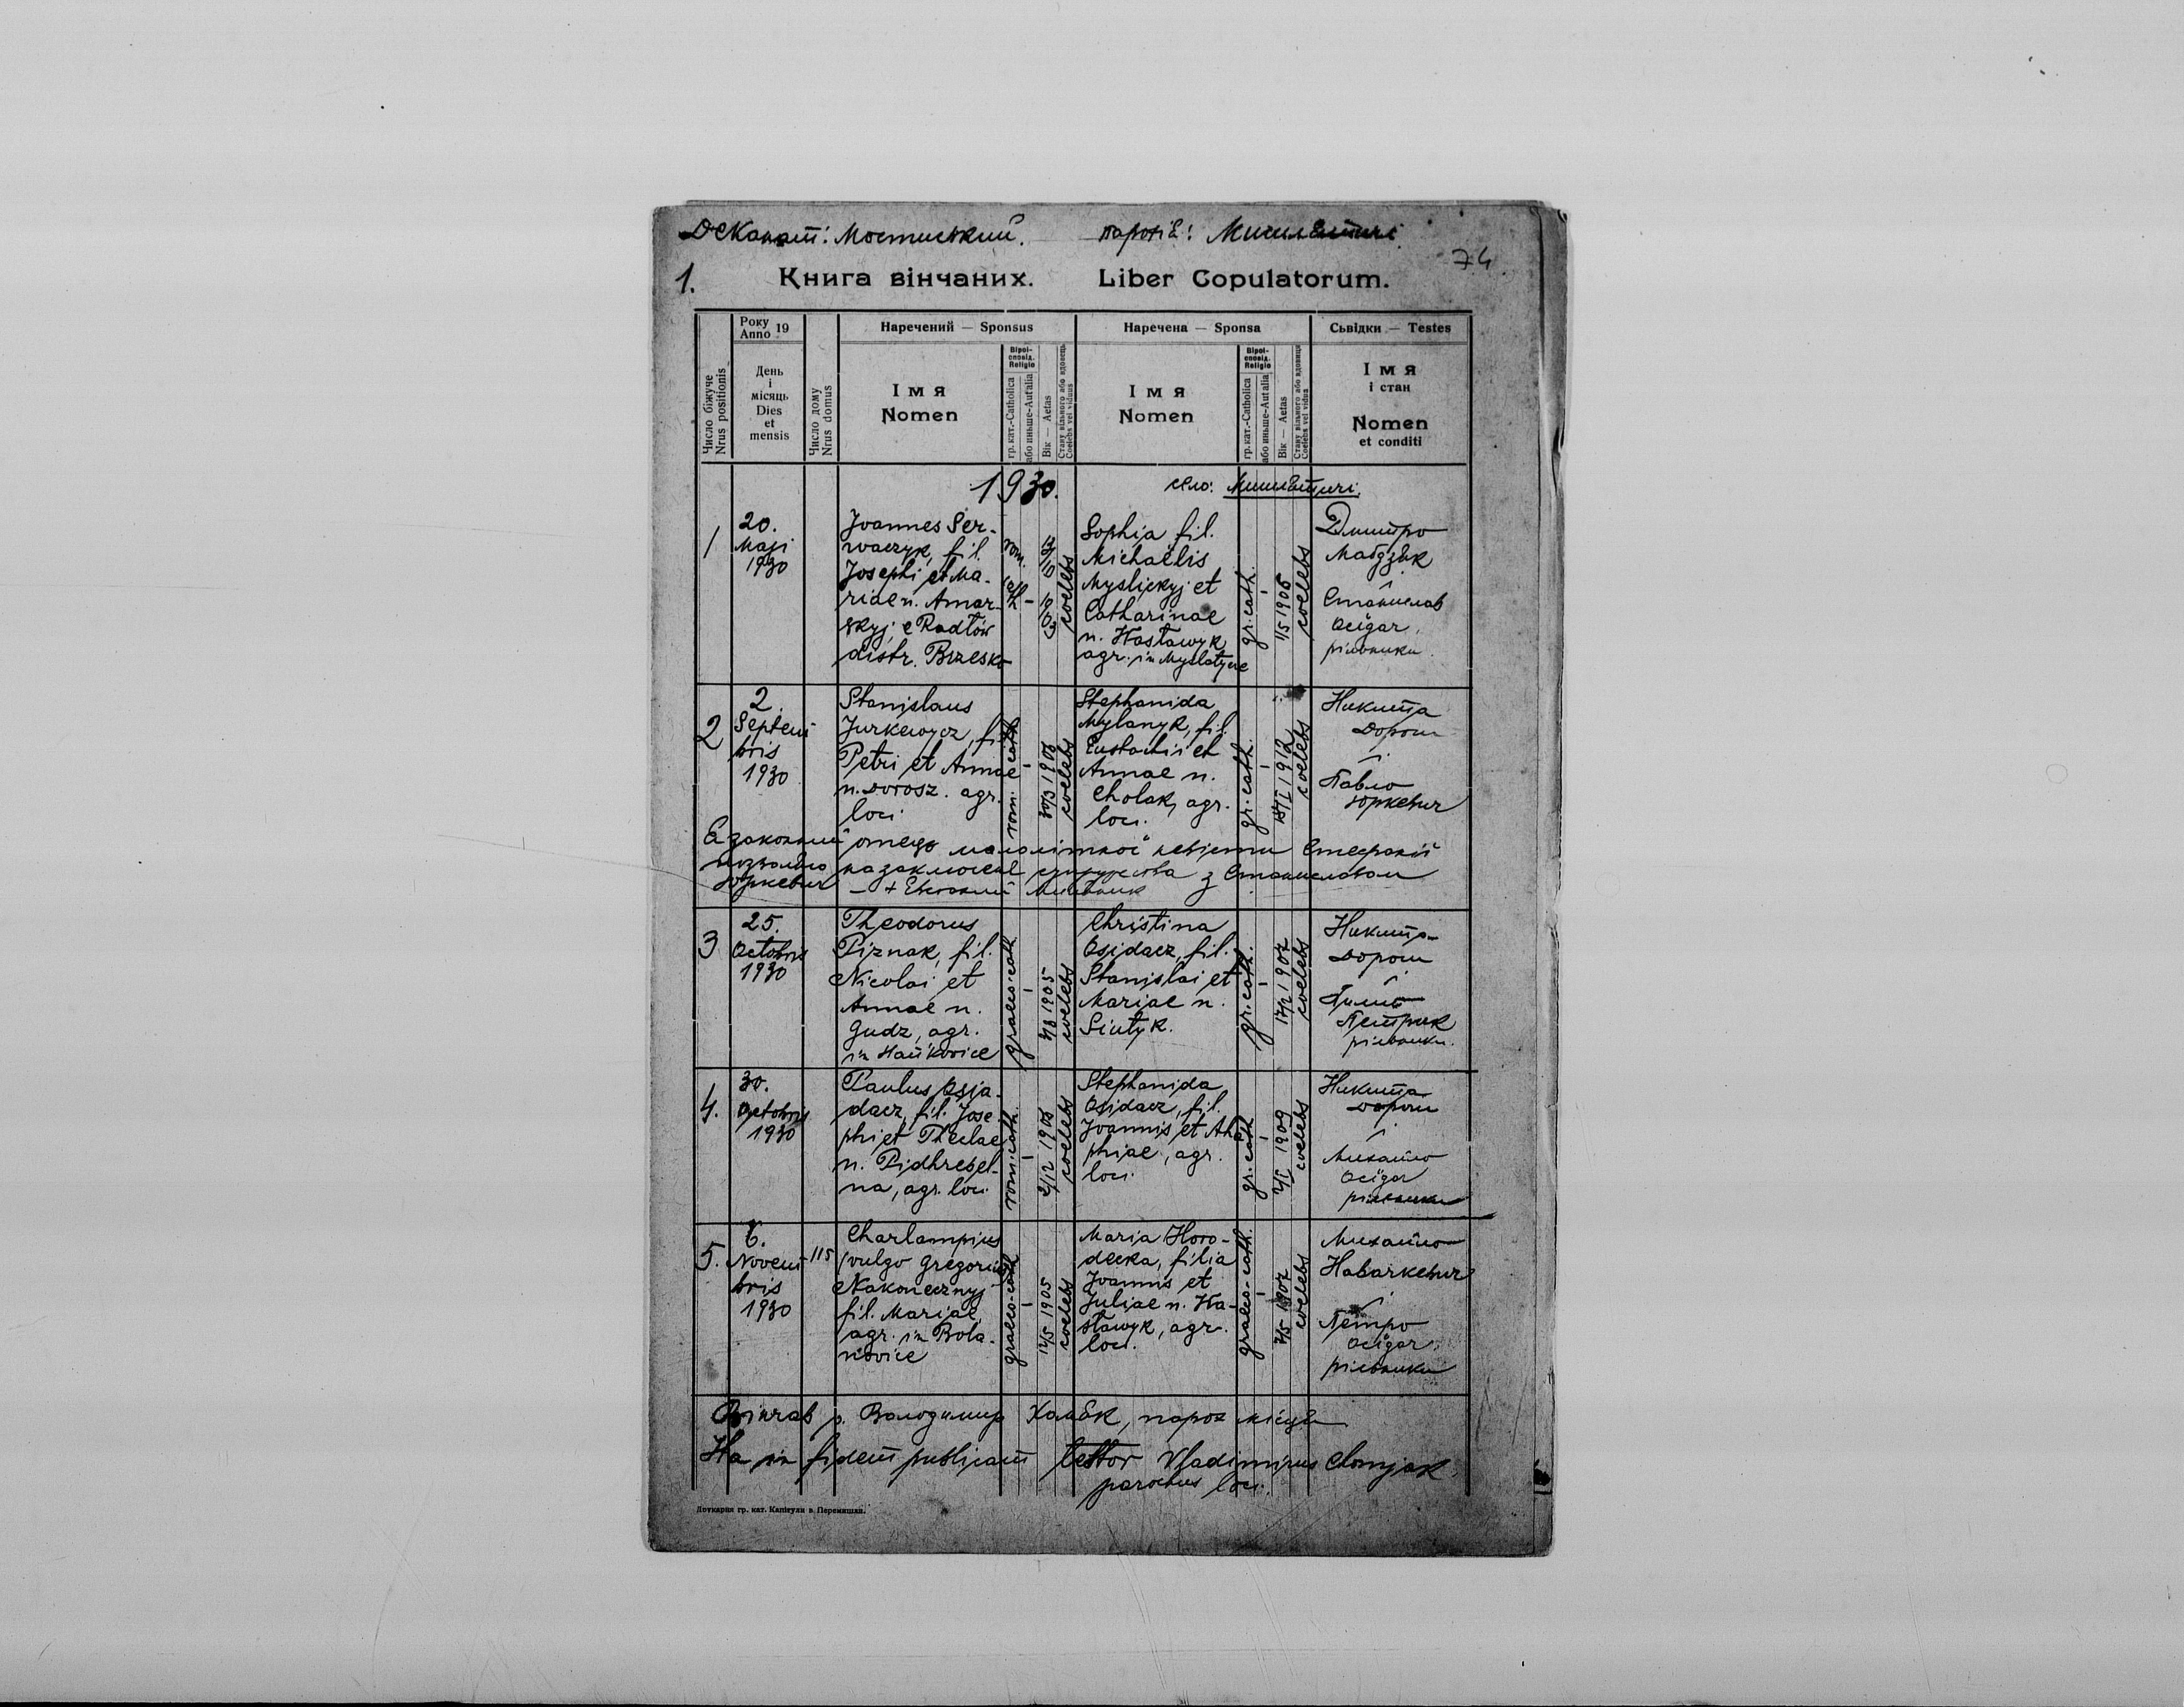 Деканат: Мостиський. парохія: Мишлятичі
74
1. Книга вінчаних. Liber Copulatorum.
Число біжуче
Nrus positionis
Року
Anno 19
День
і
місяць
Dies
et
mensis
Число дому
Nrus domus
Наречений — Sponsus
Імя
Nomen
Віроі-
сповід.
Religio
гр. кат.-Catholica
або иньше-Aut alia
Вік — Aetas
Стану вільного або вдовець
Coelebs vel viduus
Наречена — Sponsa
Імя
Nomen
Віроі-
сповід.
Religio
гр. кат.-Catholica
або иньше-Aut alia
Вік — Aetas
Стану вільного або вдовиця
Coelebs vel vidua
Сьвідки — Testes
Імя
і стан
Nomen
et conditi
1930. село: Мишлятичі.
1
20.
Maji
1930
Joannes Ser-
waczyk, fil.
Josephi et Ma-
riae n. Amar-
skyj, e Radłów
distr. Brzesko
rom. cath.
13/10 1903
coelebs
Sophia fil.
Michaëlis
Myslickyj et
Catharinae
n. Hastawyk
agr. in Myslatycze
gr. cath.
1/5 1905
coelebs
Дмитро
Мабдзяк
Станислав
Осідач
рільники.
2
2.
Septem
bris
1930
Stanislaus
Jurkewycz, fil.
Petri et Annae
n. Dorosz. agr.
loci
rom. cath.
30/3 1903
coelebs
Stephanida
Mylanyk, fil.
Eustachii et
Annae n.
Cholak, agr.
loci.
gr. cath.
18/I 1912
coelebs
Никита
Дорош
Павло
Юркевич
Я законний отець малолітної невісти Стефанії
позваляю на заключенє супружества з Станиславом
Юркевич — + Евстахий Миляник
3
25.
Octobris
1930
Theodorus
Piznak, fil.
Nicolai et
Annae n.
Gudz, agr.
in Hańkovice
graeco-cath.
3/3 1905
coelebs
Christina
Osidacz, fil.
Stanislai et
Mariae n.
Siutyk.
gr. cath.
17/2 1907
coelebs
Никита
Дорош
Петрик
рільники.
4.
30.
Octobris
1930
Paulus Osja-
dacz, fil. Jose
phi et Theclae
n. Pidhresel-
na, agr. loci.
rom. cath.
2/12 1903
coelebs
Stephanida
Osidacz, fil.
Joannis et
phiae, agr.
loci.
gr. cath
2/I 1909
coelebs
Никита
Дорош
Михайло
Осідач
рільники
5.
6.
Novem
bris
1930
115
Charlampius
(vulgo Gregorius)
Nakonecznyj
fil. Mariae,
agr. in Bola-
novice
graeco-cath
12/5 1905
coelebs
Maria Horo-
decka, filia
Joannis et
Juliae n. Ha-
stawyk, agr.
loci.
graeco-cath.
7/5 1907
coelebs
Михайло
Наваркевич
Петро
Осідач
рільники
Вінчав о. Володимир Хомяк, парох місця
Ita in fidem publicam testor Vladimirus Chomjak
parochus loci.
Друкарня гр. кат. Капітули в Перемишли.